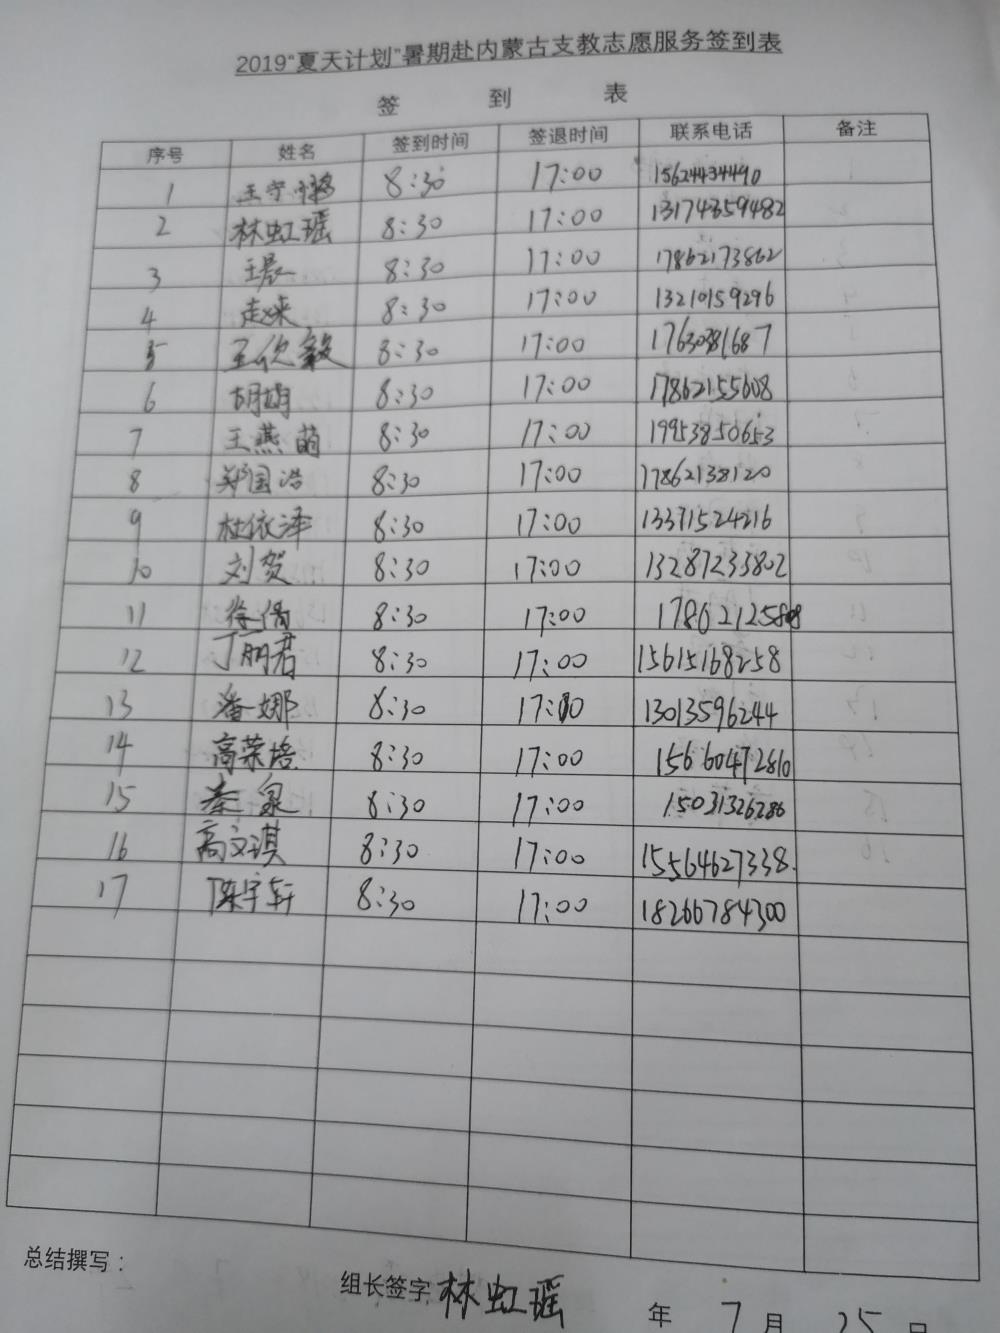 2019“夏天计划”暑期赴内蒙古支教志愿服务签到表
签 到 表
序号 姓名 签到时间 签退时间 联系电话 备注
1 王宁 8:30 17:00 15624434490
2 林虹瑶 8:30 17:00 13174359482
3 王晨 8:30 17:00 17862173862
4 赵来 8:30 17:00 13210159296
5 王欣毅 8:30 17:00 17630381687
6 胡娟 8:30 17:00 17862155608
7 王燕萌 8:30 17:00 19953850653
8 郑国浩 8:30 17:00 17862138120
9 杜依泽 8:30 17:00 13371524216
10 刘贺 8:30 17:00 13287233802
11 徐倩 8:30 17:00
12 丁丽君 8:30 17:00 15615168258
13 潘娜 8:30 17:00 13013596244
14 高荣培 8:30 17:00 15660472810
15 秦泉 8:30 17:00 15031326286
16 高文琪 8:30 17:00 15564627338
17 陈宇轩 8:30 17:00 18266784300
总结撰写：
组长签字 林虹瑶
年 7 月 25 日